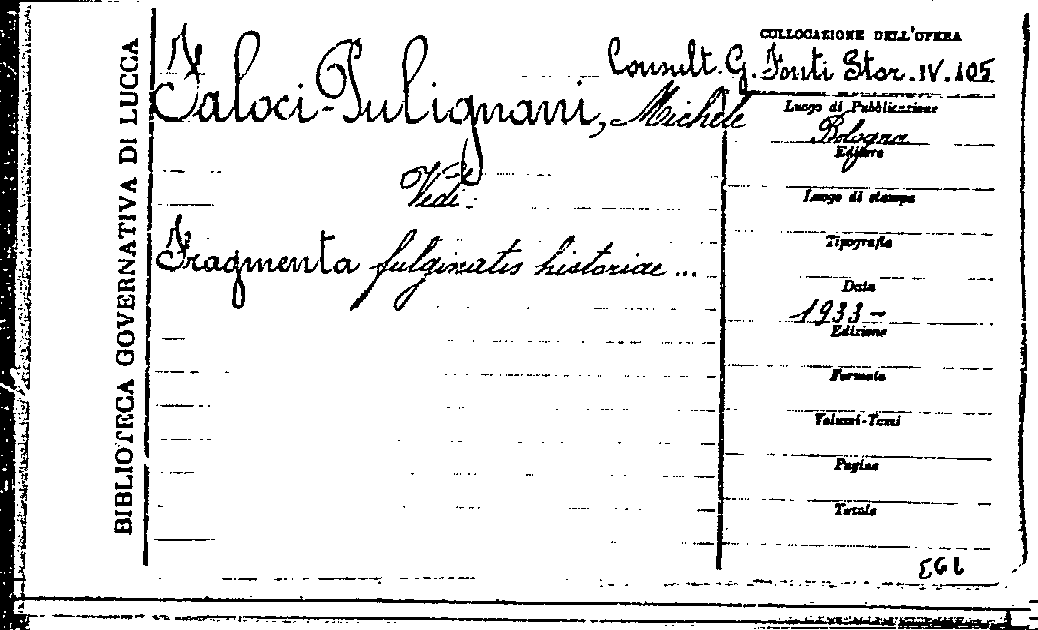 BIBLIOTECA GOVERNATIVA DI LUCCA
COLLOCAZIONE DELL'OPERA
Consult. G. Fonti Stor. IV. 105
Faloci-Pulignani, Michele
Vedi:
Fragmenta fulginatis historiae ...
Luogo di Pubblicazione
Bologna
Editore
Luogo di stampa
Tipografia
Data
1933-
Edizione
Formato
Volumi-Tomi
Pagine
Tavole